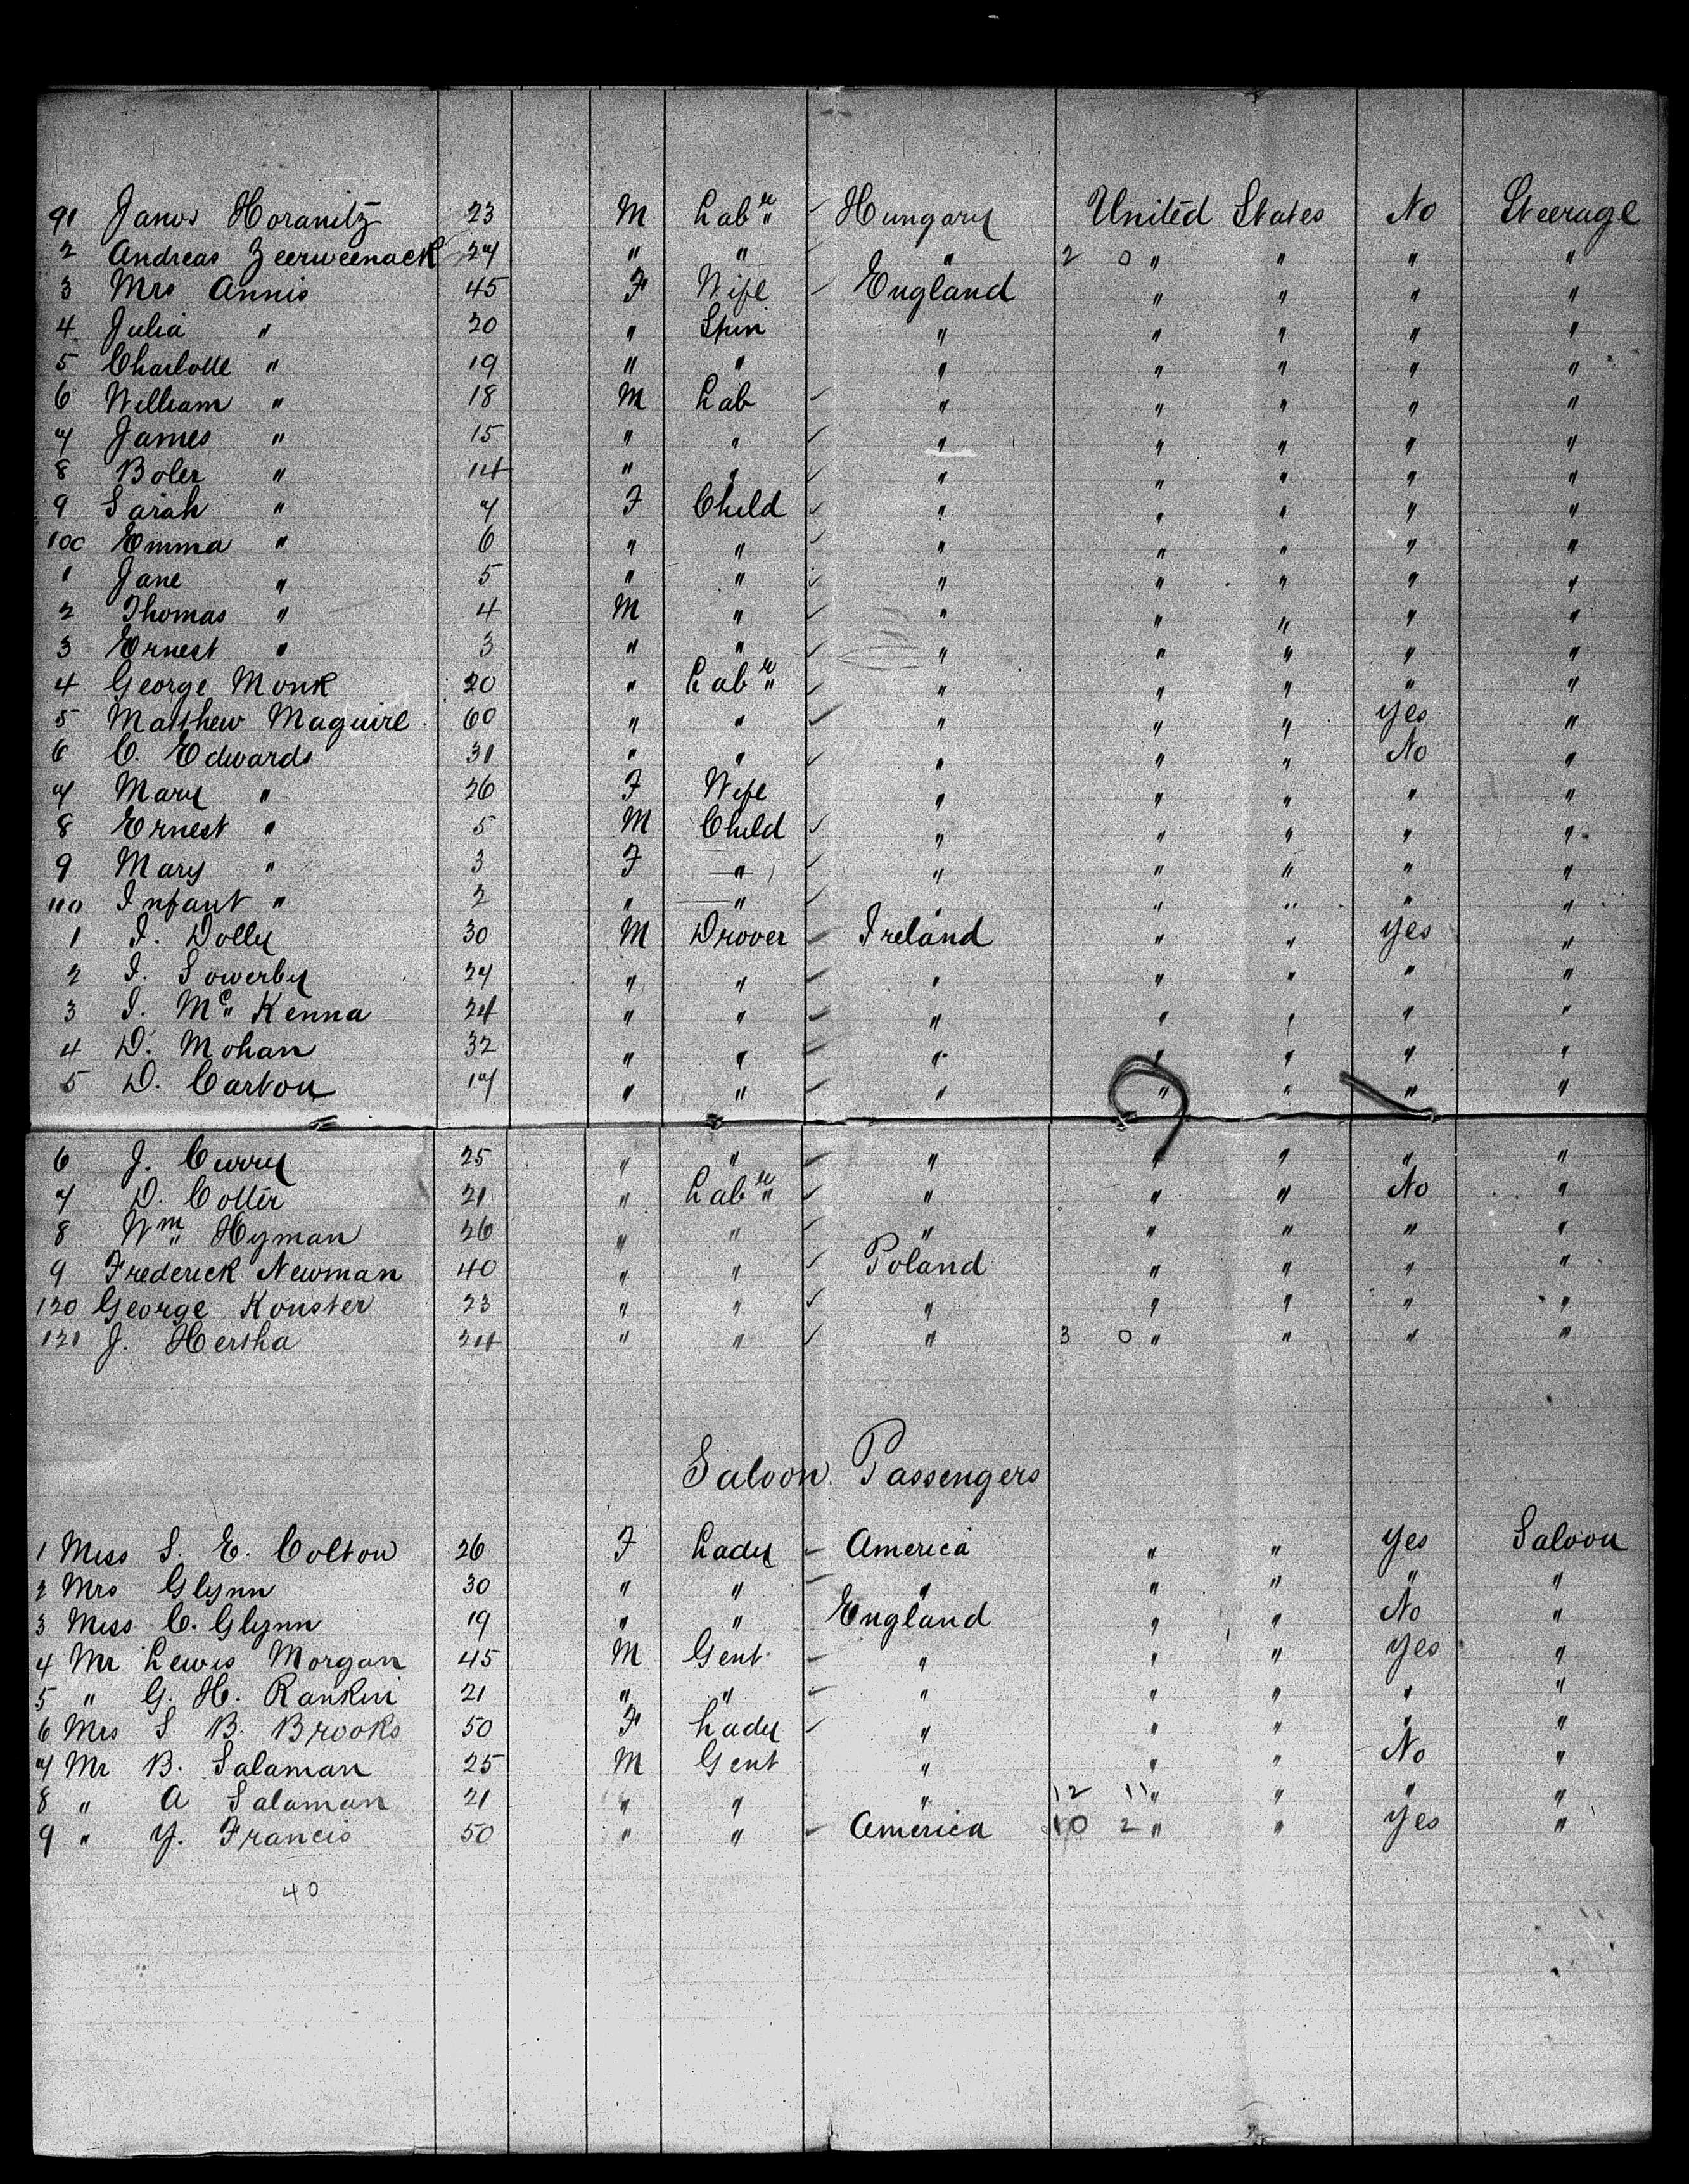 91 Janos Horanitz 23 M Lab r " Hungary United States No Steerage
2 Andreas Zeerweenack 27 " " " 2 0 " " " "
3 Mrs Annis 45 F Wife England " " " "
4 Julia " 20 " Spin " " " " "
5 Charlotte " 19 " " " " " " "
6 William " 18 M Lab " " " " "
7 James " 15 " " " " " " "
8 Boler " 14 " " " " " " "
9 Sarah " 7 F Child " " " " "
100 Emma " 6 " " " " " " "
1 Jane " 5 " " " " " " "
2 Thomas " 4 M " " " " " "
3 Ernest " 3 " " " " " " "
4 George Monk 20 " Lab r " " " " " "
5 Matthew Maguire 60 " " " " " Yes "
6 C. Edwards 31 " " " " " No "
7 Mary " 26 F Wife " " " " "
8 Ernest " 5 M Child " " " " "
9 Mary " 3 F " " " " " "
110 Infant " 2 " " " " " " "
1 I. Dolly 30 M Drover Ireland " " Yes "
2 I. Sowerby 27 " " " " " " "
3 I. Mc" Kenna 24 " " " " " " "
4 D. Mohan 32 " " " " " " "
5 D. Carton 17 " " " " " " "
6 J. Curry 25 " " " " " " "
7 D. Cotter 21 " Lab r " " " " No "
8 Wm " Hyman 26 " " " " " " "
9 Frederick Newman 40 " " Poland " " " "
120 George Konster 23 " " " " " " "
121 J. Hertha 24 " " " 3 0 " " " "
Saloon Passengers
1 Miss S. E. Colton 26 F Lady America " " Yes Saloon
2 Mrs Glynn 30 " " " " " " "
3 Miss C. Glynn 19 " " England " " No "
4 Mr Lewis Morgan 45 M Gent " " " Yes "
5 " G. H. Rankin 21 " " " " " " "
6 Mrs S. B. Brooks 50 F Lady " " " " "
7 Mr B. Salaman 25 M Gent " " " No "
8 " A Salaman 21 " " " 12 11 " " " "
9 " Y. Francis 50 " " America 10 2 " " Yes "
40